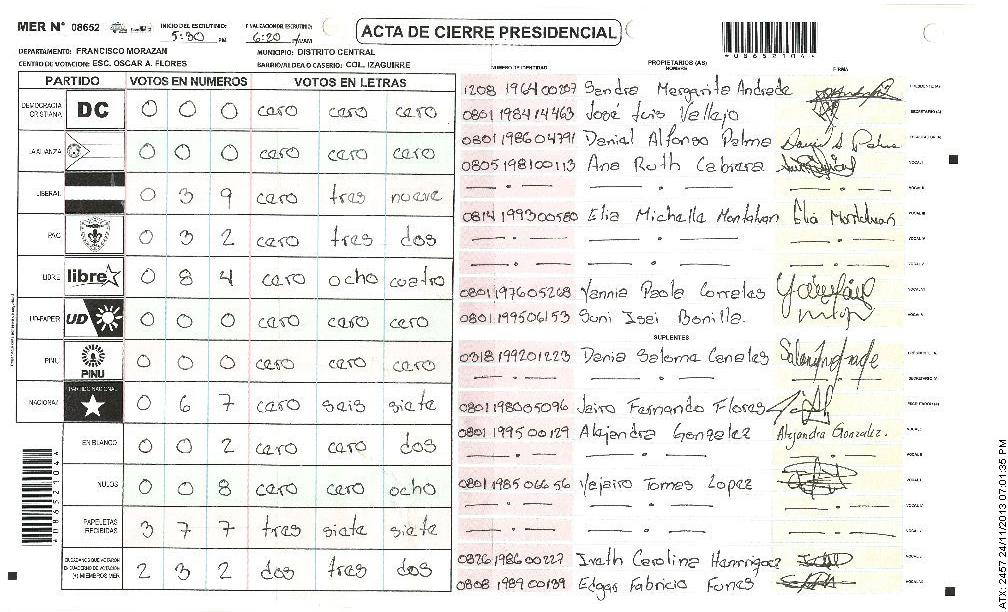 MER N° 08652
INICIO DEL ESCRUTINIO: 5:30 PM
FINALIZACION DEL ESCRUTINIO: 6:20
ACTA DE CIERRE PRESIDENCIAL
DEPARTAMENTO: FRANCISCO MORAZAN
MUNICIPIO: DISTRITO CENTRAL
CENTRO DE VOTACION: ESC. OSCAR A. FLORES
BARRIO/ALDEA O CASERIO: COL. IZAGUIRRE
PARTIDO VOTOS EN NUMEROS VOTOS EN LETRAS
DEMOCRACIA CRISTIANA DC 0 0 0 cero cero cero
LA ALIANZA 0 0 0 cero cero cero
LIBERAL 0 3 9 cero tres nueve
PAC 0 3 2 cero tres dos
LIBRE libre 0 8 4 cero ocho cuatro
UD-FAPER UD 0 0 0 cero cero cero
PINU PINU 0 0 0 cero cero cero
NACIONAL PARTIDO NACIONAL 0 6 7 cero seis siete
EN BLANCO 0 0 2 cero cero dos
NULOS 0 0 8 cero cero ocho
PAPELETAS RECIBIDAS 3 7 7 tres siete siete
2 3 2 dos tres dos
NUMERO DE IDENTIDAD PROPIETARIOS (AS) NOMBRE FIRMA
1208 1964 00207 Sandra Margarita Andrade
0801 1984 14463 José Luis Vallejo
0801 1986 04791 Daniel Alfonso Palma
0805 1981 00113 Ana Ruth Cabrera
0814 1993 00580 Elia Michelle
0801 1976 05268 Yannia Paola Corrales
0801 1995 06153 Suni Isai Bonilla
SUPLENTES
0318 1992 01223 Dania Salome Canales
0801 1980 05096 Jairo Fernando Flores
0801 1995 00129 Alejandra Gonzalez Alejandra Gonzalez.
0801 1985 06656 Yejairo Tomes Lopez
0826 1986 00227 Iveth Carolina Henriquez
0808 1989 00139 Edgar Fabricio Funes
ATX-2457 24/11/2013 07:01:35 PM